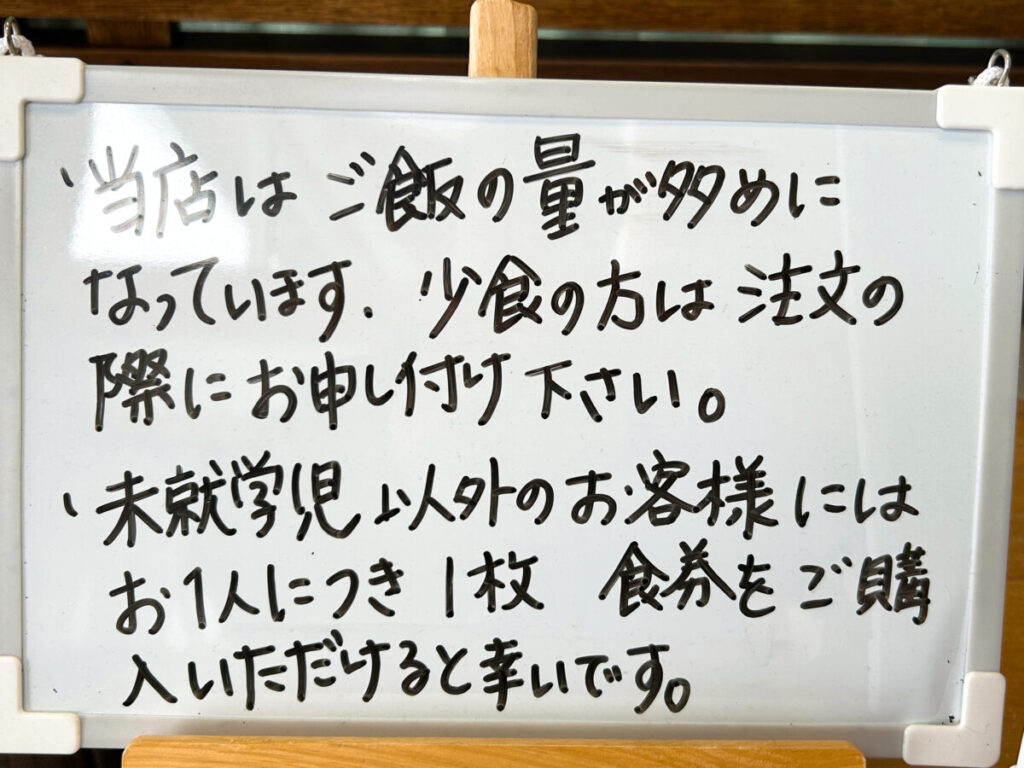 ・当店はご飯の量が多めに
なっています. 少食の方は注文の
際にお申し付け下さい。
・未就学児以外のお客様には
お1人につき 1枚 食券をご購
入いただけると幸いです。